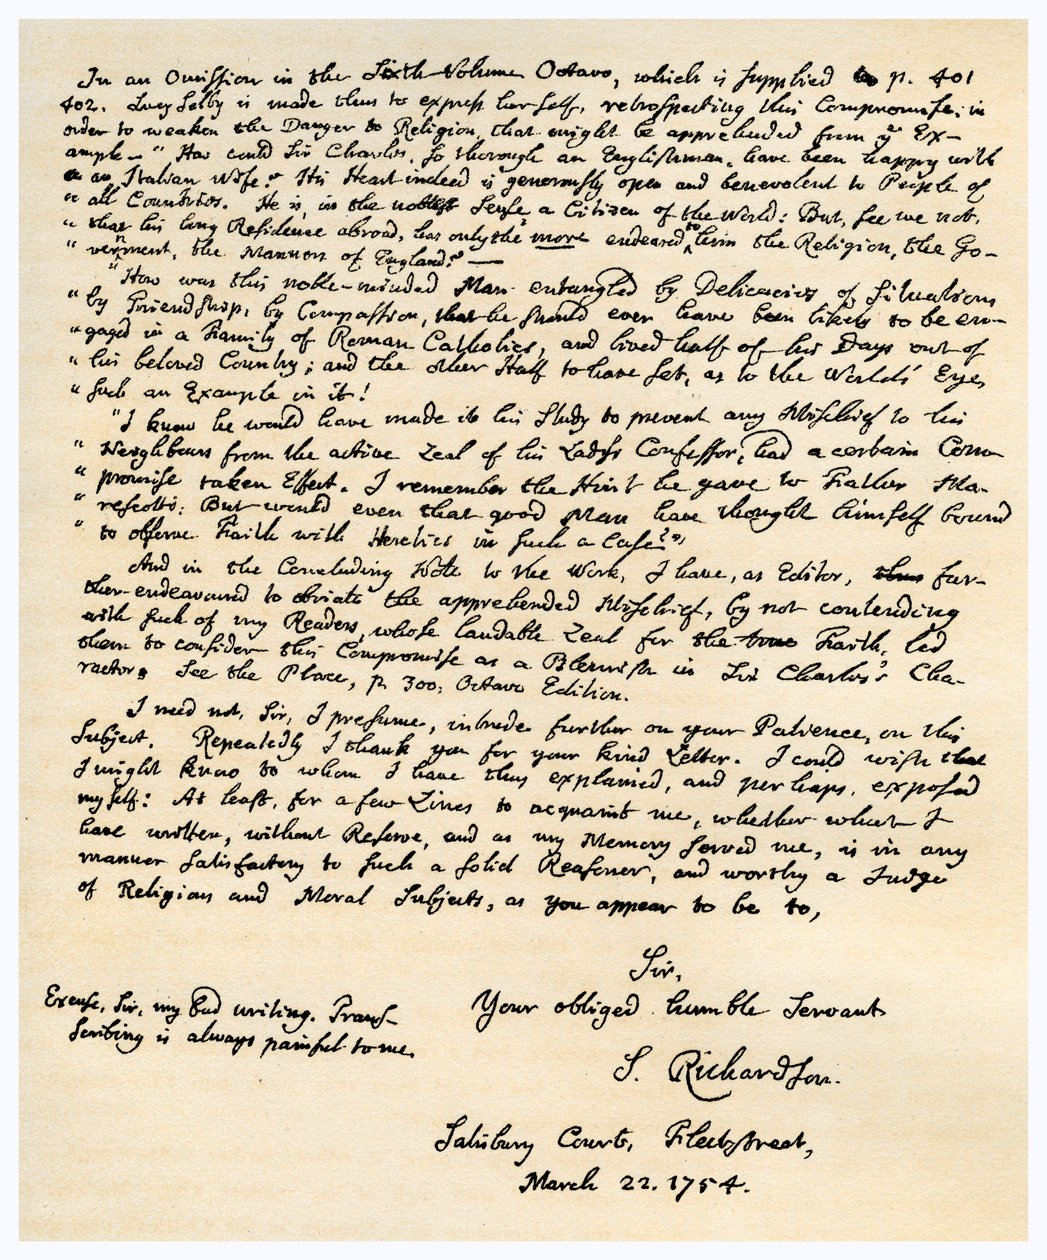 In an Omission in the Sixth Volume Octavo, which is supplied p. 401
402. Lucy Selby is made thus to express herself, retrospecting this Compromise; in
order to weaken the Danger to Religion, that might be apprehended from yᵉ Ex-
ample – "How could Sir Charles, so thorough an Englishman, have been happy with
" an Italian Wife? His Heart indeed is generously open and benevolent to People of
" all Countries. He is, in the noblest Sense, a Citizen of the World: But, see we not,
" that his long Residence abroad, has only the more endeared to him the Religion, the Go-
" vernment, the Manners of England? —
"How was this noble-minded Man entangled by Delicacies of Situation,
" by Friendship, by Compassion, that he should ever have been likely to be en-
" gaged in a Family of Roman Catholics, and lived half of his Days out of
" his beloved Country; and the other Half to have set, as to the World's Eye,
" such an Example in it!
"I know he would have made it his Study to prevent any Mischief to his
" Neighbours from the active Zeal of his Lady's Confessor, had a certain Com-
" promise taken Effect. I remember the Hint he gave to Father Ma-
" rescotti: But would even that good Man have thought himself bound
" to observe Faith with Heretics in such a Case?"
And in the Concluding Note to the Work, I have, as Editor, thus fur-
ther endeavoured to obviate the apprehended Mischief, by not contending
with such of my Readers, whose laudable Zeal for the true Faith, led
them to consider this Compromise as a Blemish in Sir Charles's Cha-
racter. See the Place, p. 300, Octavo Edition.
I need not, Sir, I presume, intrude further on your Patience, on this
Subject. Repeatedly I thank you for your kind Letter. I could wish that
I might know to whom I have thus explained, and perhaps, exposed
myself: At least, for a few Lines to acquaint me, whether what I
have written, without Reserve, and as my Memory served me, is in any
manner satisfactory to such a solid Reasoner, and worthy a Judge
of Religious and Moral Subjects, as you appear to be to,
Sir,
Your obliged humble Servant
S. Richardson.
Excuse, Sir, my bad writing. Trans-
scribing is always painful to me.
Salisbury Court, Fleetstreet,
March 22. 1754.